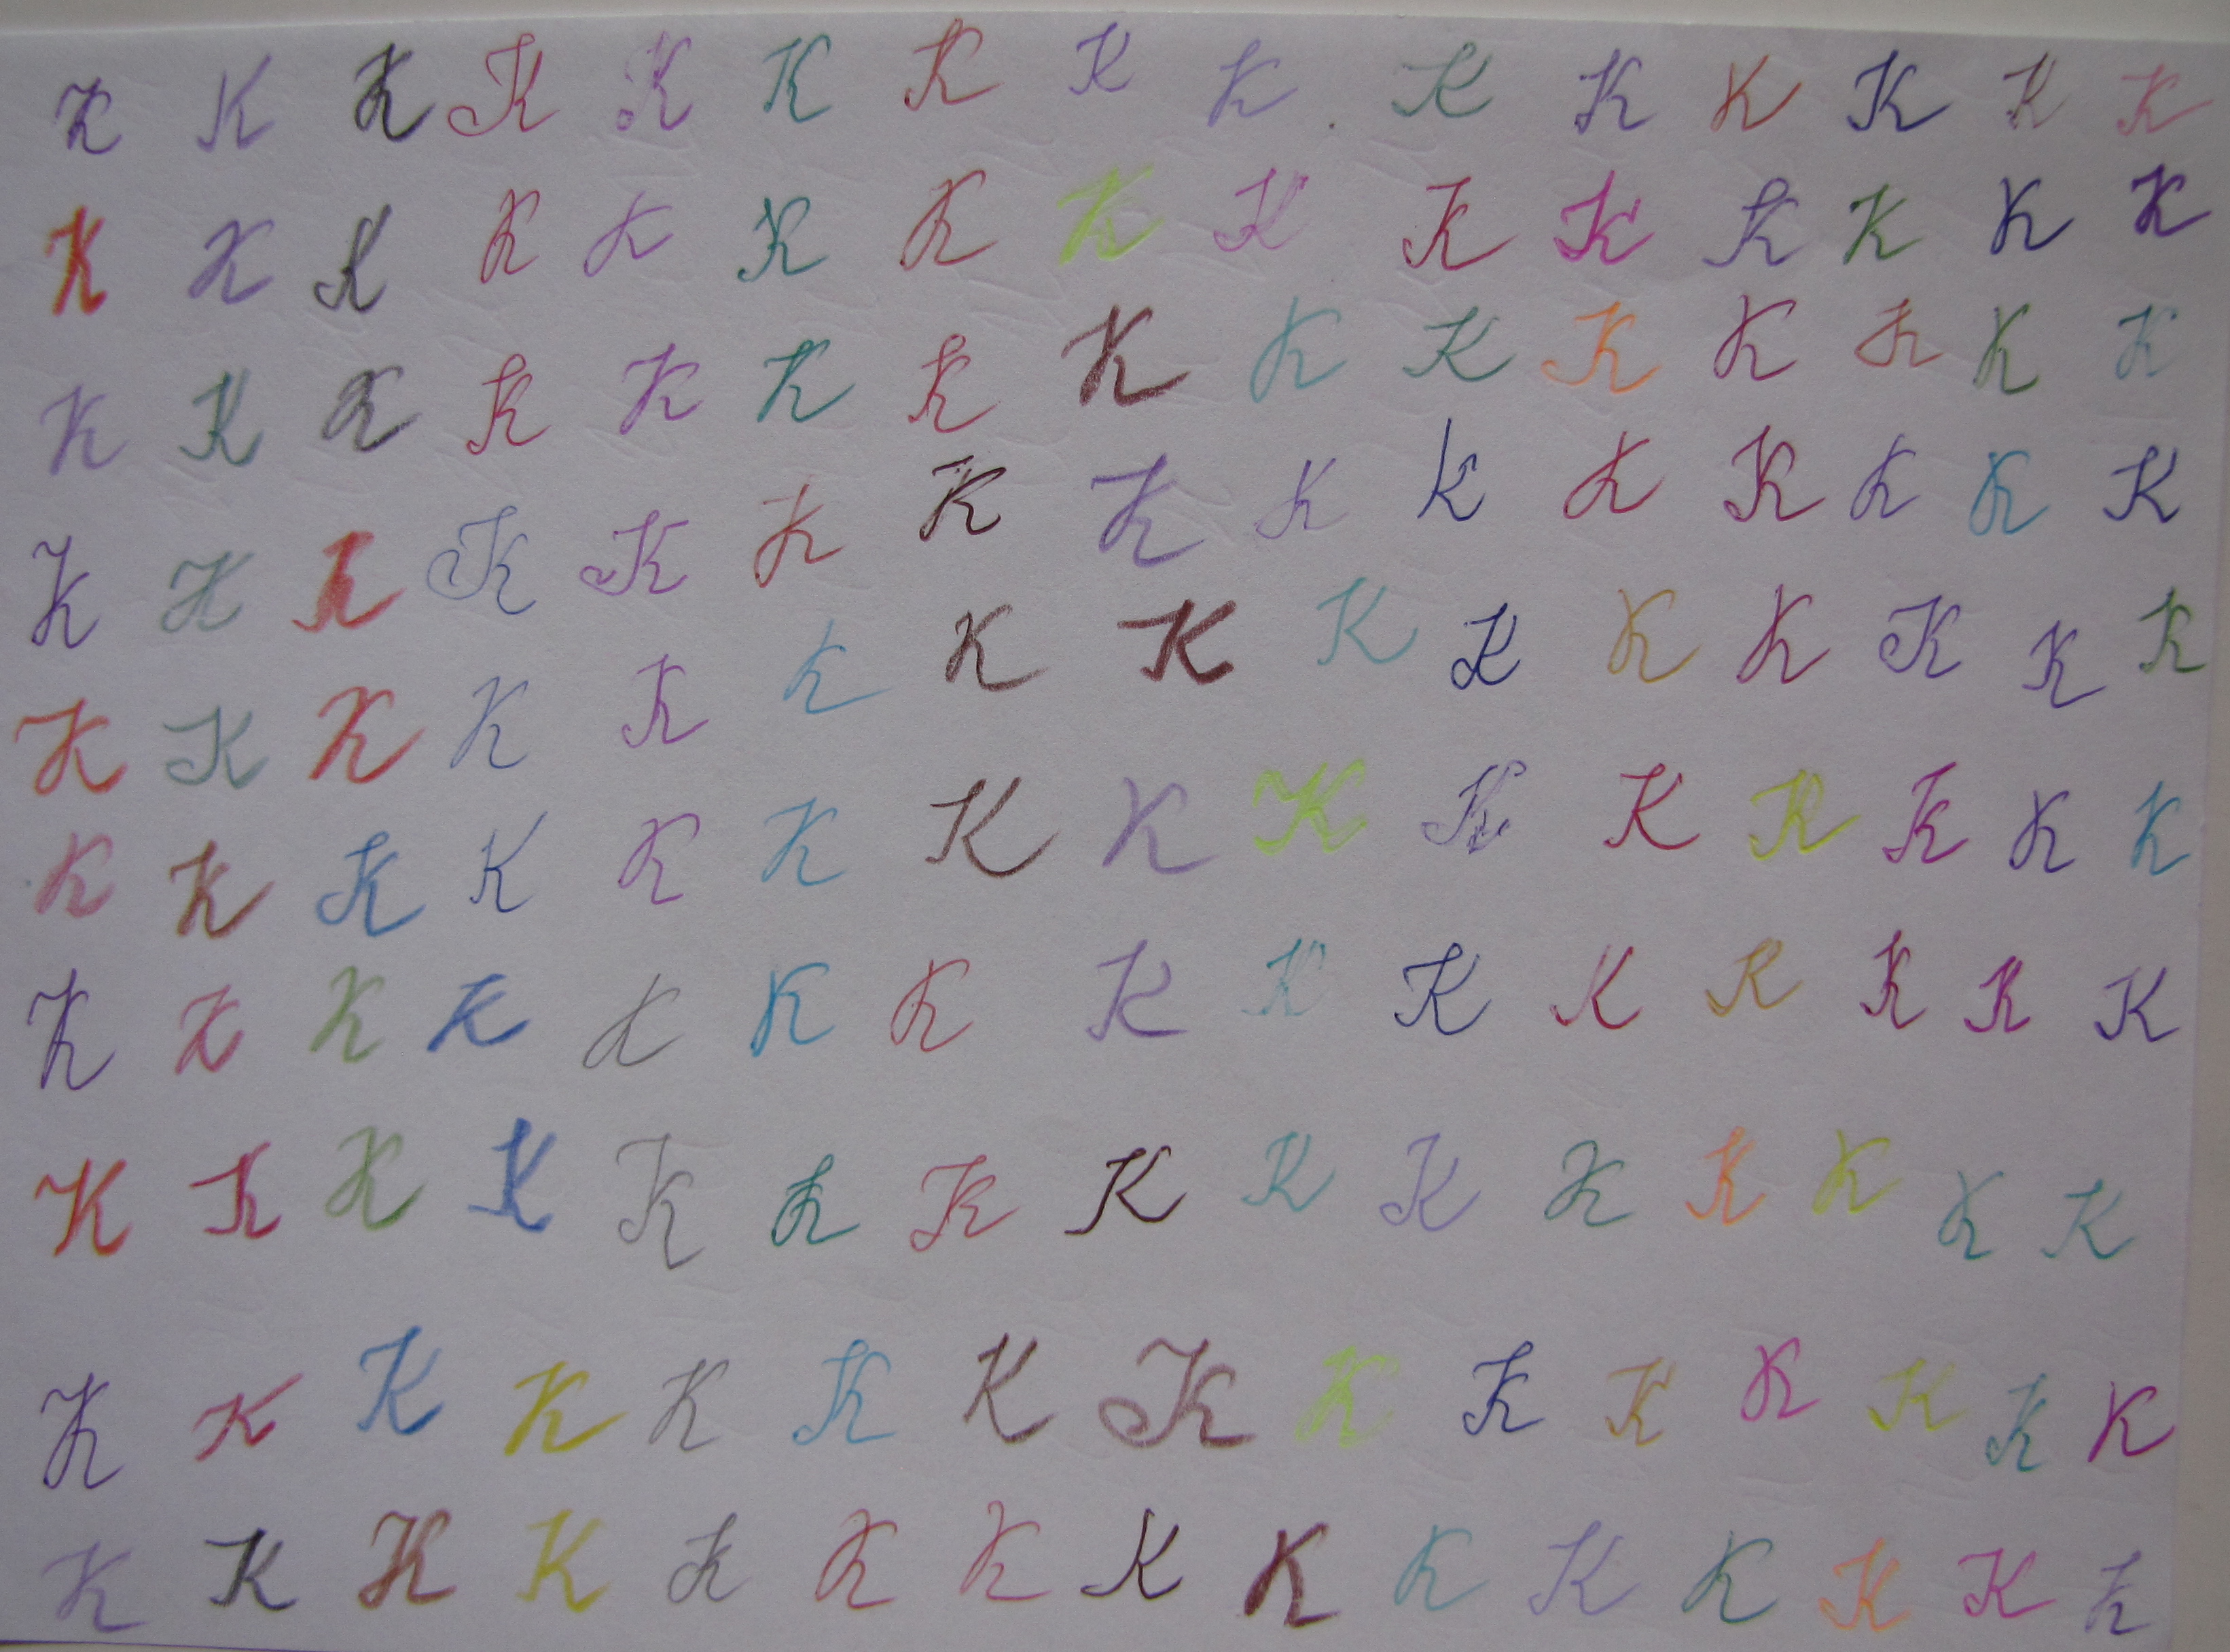 K K K K K K K K K K K K K K K
K K K K K K K K K K K K K K K
K K K K K K K K K K K K K K K
K K K K K K K K K K K K K K K
K K K K K K K K K K K K K K K
K K K K K K K K K K K K K K K
K K K K K K K K K K K K K K K
K K K K K K K K K K K K K K K
K K K K K K K K K K K K K K K
K K K K K K K K K K K K K K K